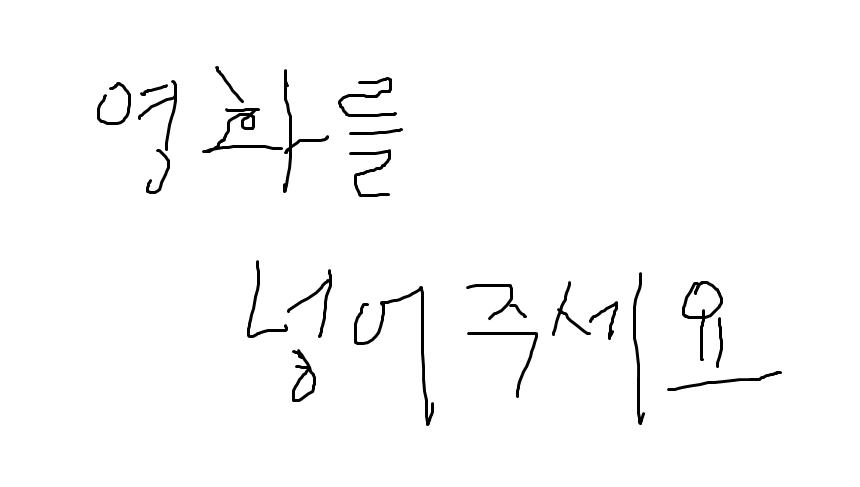 영화를
넣어주세요